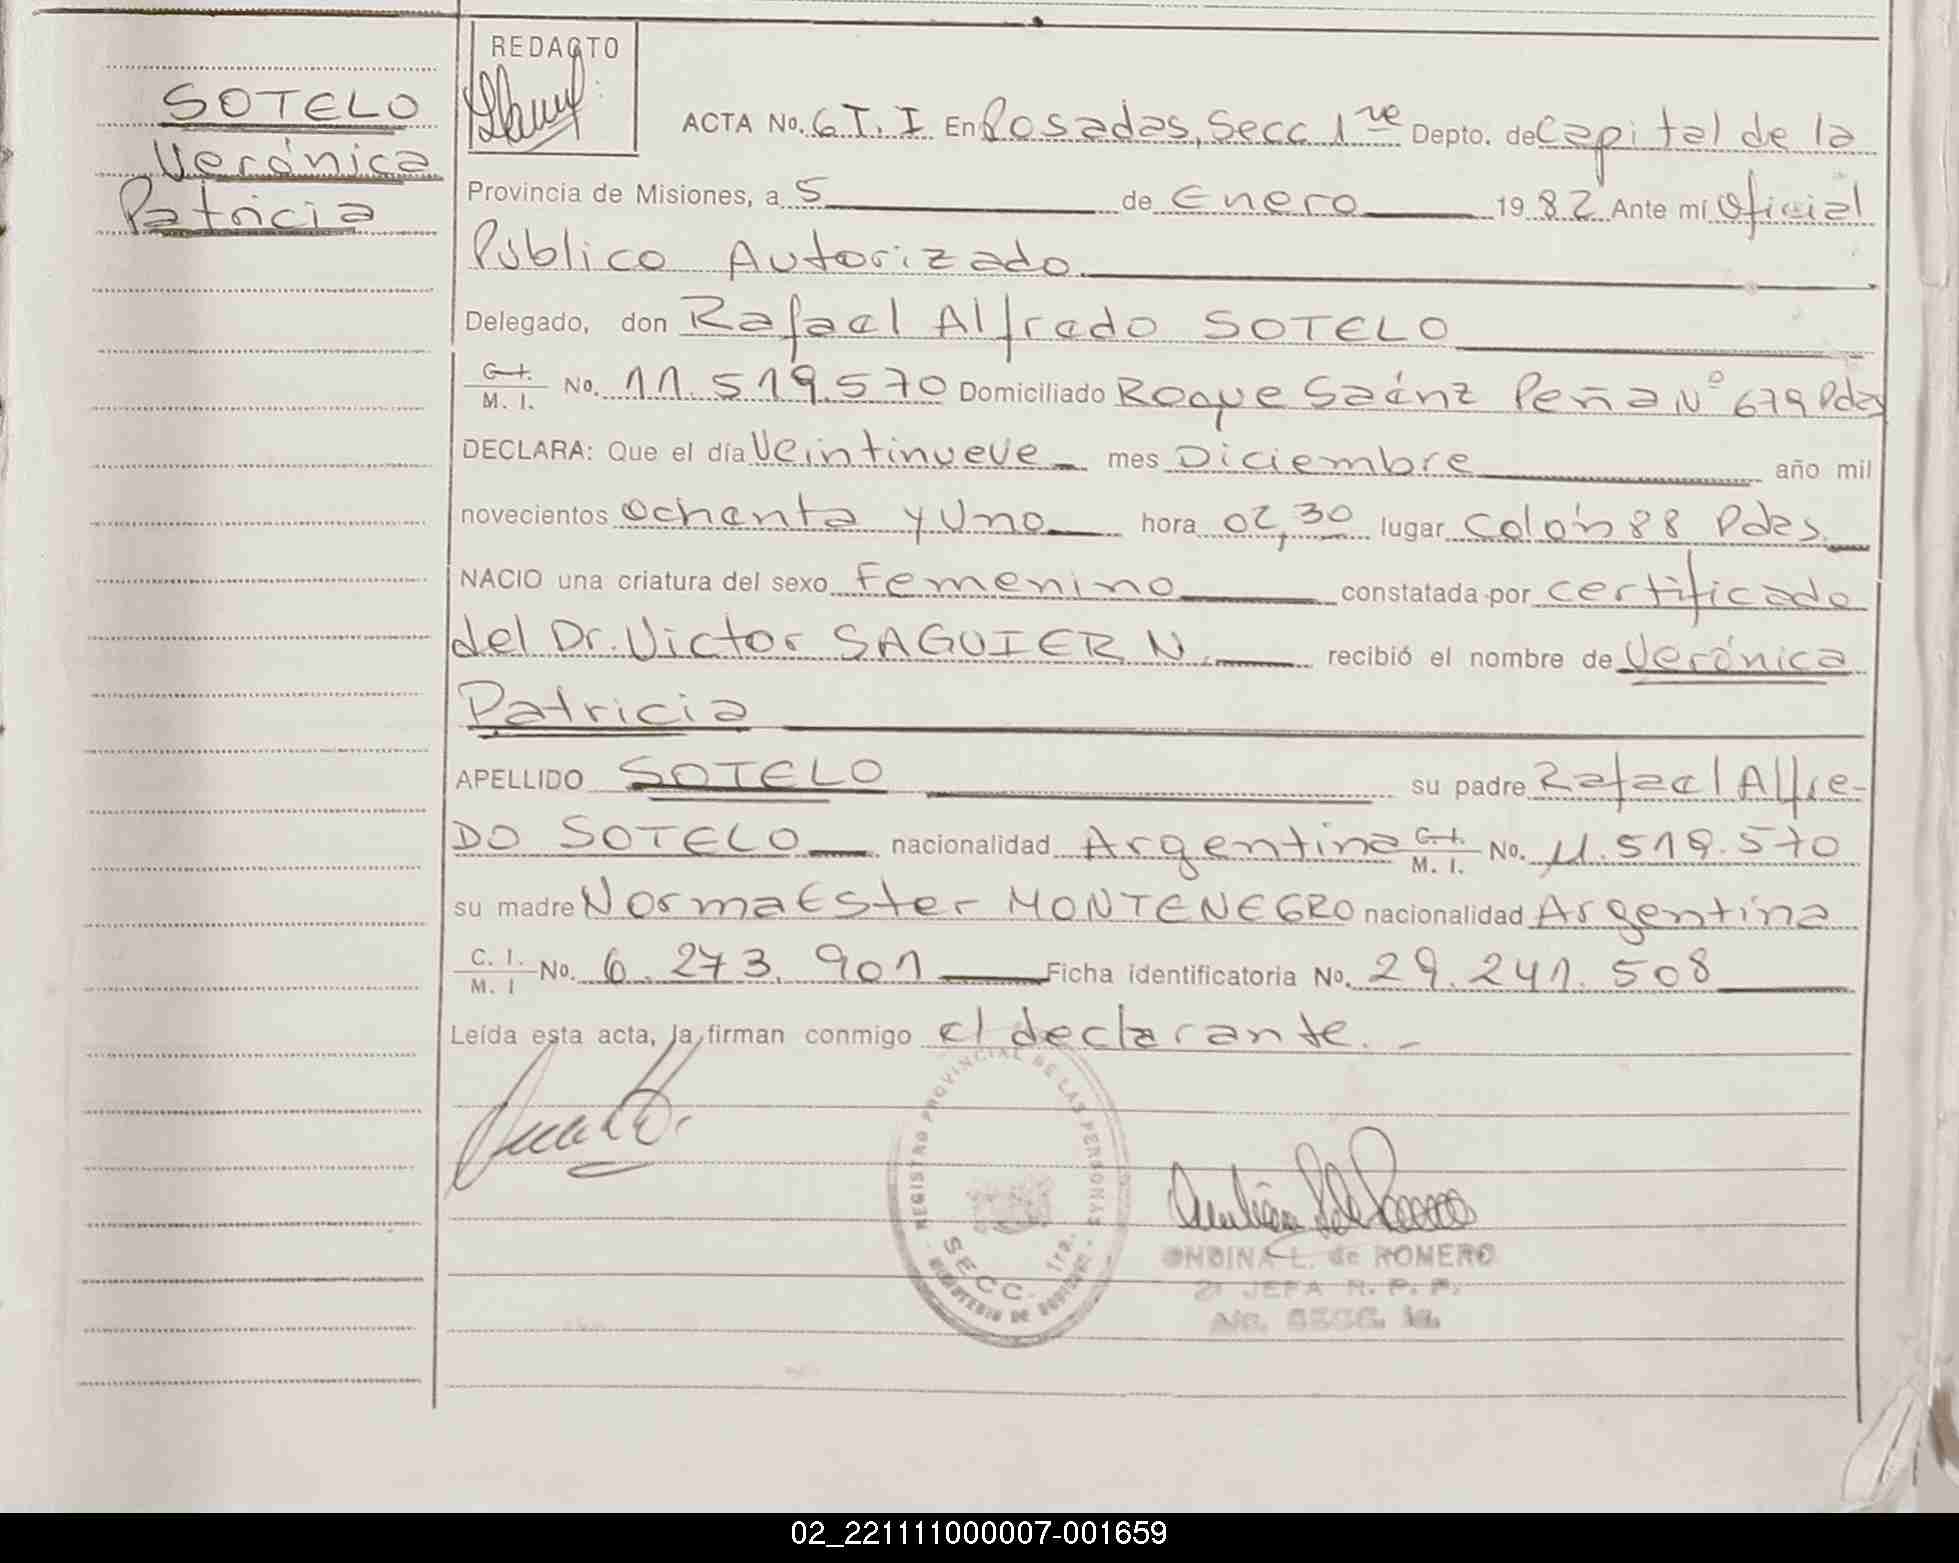 SOTELO
Verónica
Patricia
REDACTO
ACTA No. 6 T. I En Posadas, Secc 1ra Depto. de Capital de la
Provincia de Misiones, a 5 de Enero 1982 Ante mí Oficial
Público Autorizado
Delegado, don Rafael Alfredo SOTELO
M. I. No. 11.519.570 Domiciliado Roque Saénz Peña Nº 679 Pdas
DECLARA: Que el día Veintinueve mes Diciembre año mil
novecientos ochenta y Uno hora 02,30 lugar Colón 88 Pdas.
NACIO una criatura del sexo Femenino constatada por certificado
del Dr. Victor SAGUIER N. recibió el nombre de Verónica
Patricia
APELLIDO SOTELO su padre Rafael Alfre-
DO SOTELO nacionalidad Argentina M. I. No. 11.519.570
su madre Norma Ester MONTENEGRO nacionalidad Argentina
C. I. M. I No. 6.273.901 Ficha identificatoria No. 29.241.508
Leída esta acta, la firman conmigo el declarante.-
REGISTRO PROVINCIAL DE LAS PERSONAS
SECC. 1ra.
ONDINA L. de ROMERO
2ª JEFA R. P. P.
02_221111000007-001659